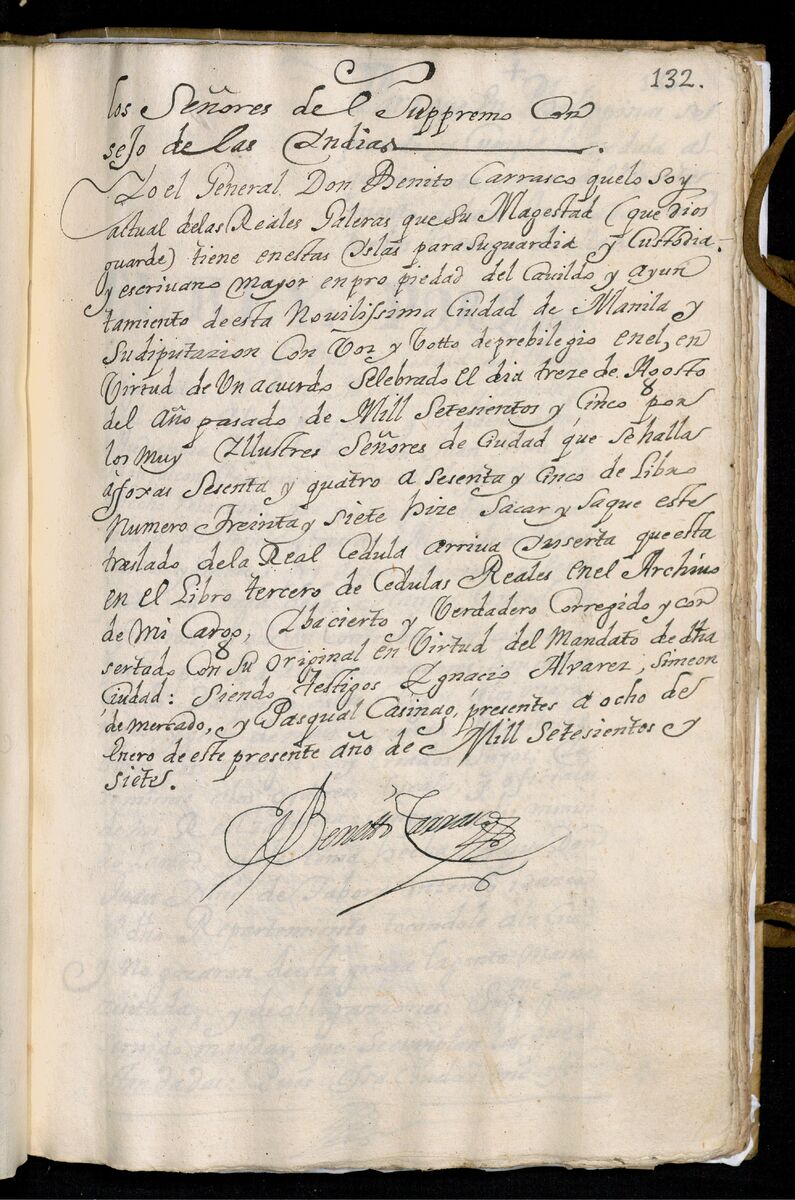 132.
los Señores del Suppremo Con
sejo de las Yndias.
Yo el General Don Benito Carrasco que lo soy
actual delas Reales Galeras que Su Magestad (que Dios
guarde) tiene enestas Yslas para suguardia y Custodia
y escrivano mayor enpro piedad del Cavildo y ayun
tamiento deesta Novilissima Ciudad de Manila y
Sudiputazion Con Voz y Votto deprebilegio enel, en
Virtud de Un acuerdo Selebrado El dia treze de Agosto
del año pasado de Mill Setesientos y Cinco por
los muy Yllustres Señores de Ciudad que sehalla
áfoxas Sesenta y quatro a sesenta y Cinco de Libro
Numero Treinta y siete hize Sacar y Saque este
traslado dela Real Cedula arriva Ynserta que esta
en el Libro tercero de Cedulas Reales enel Archivo
de Mi Cargo, Yba cierto y Verdadero Corregido y con
sertado Con Su original en Virtud del Mandato de dha
Ciudad: Siendo testigos Ygnacio Alvarez, Simeon
de Mercado, y Pasqual Casingo, presentes a ocho de
Enero de este presente año de Mill Setesientos y
siete.
Benitto Carrasco